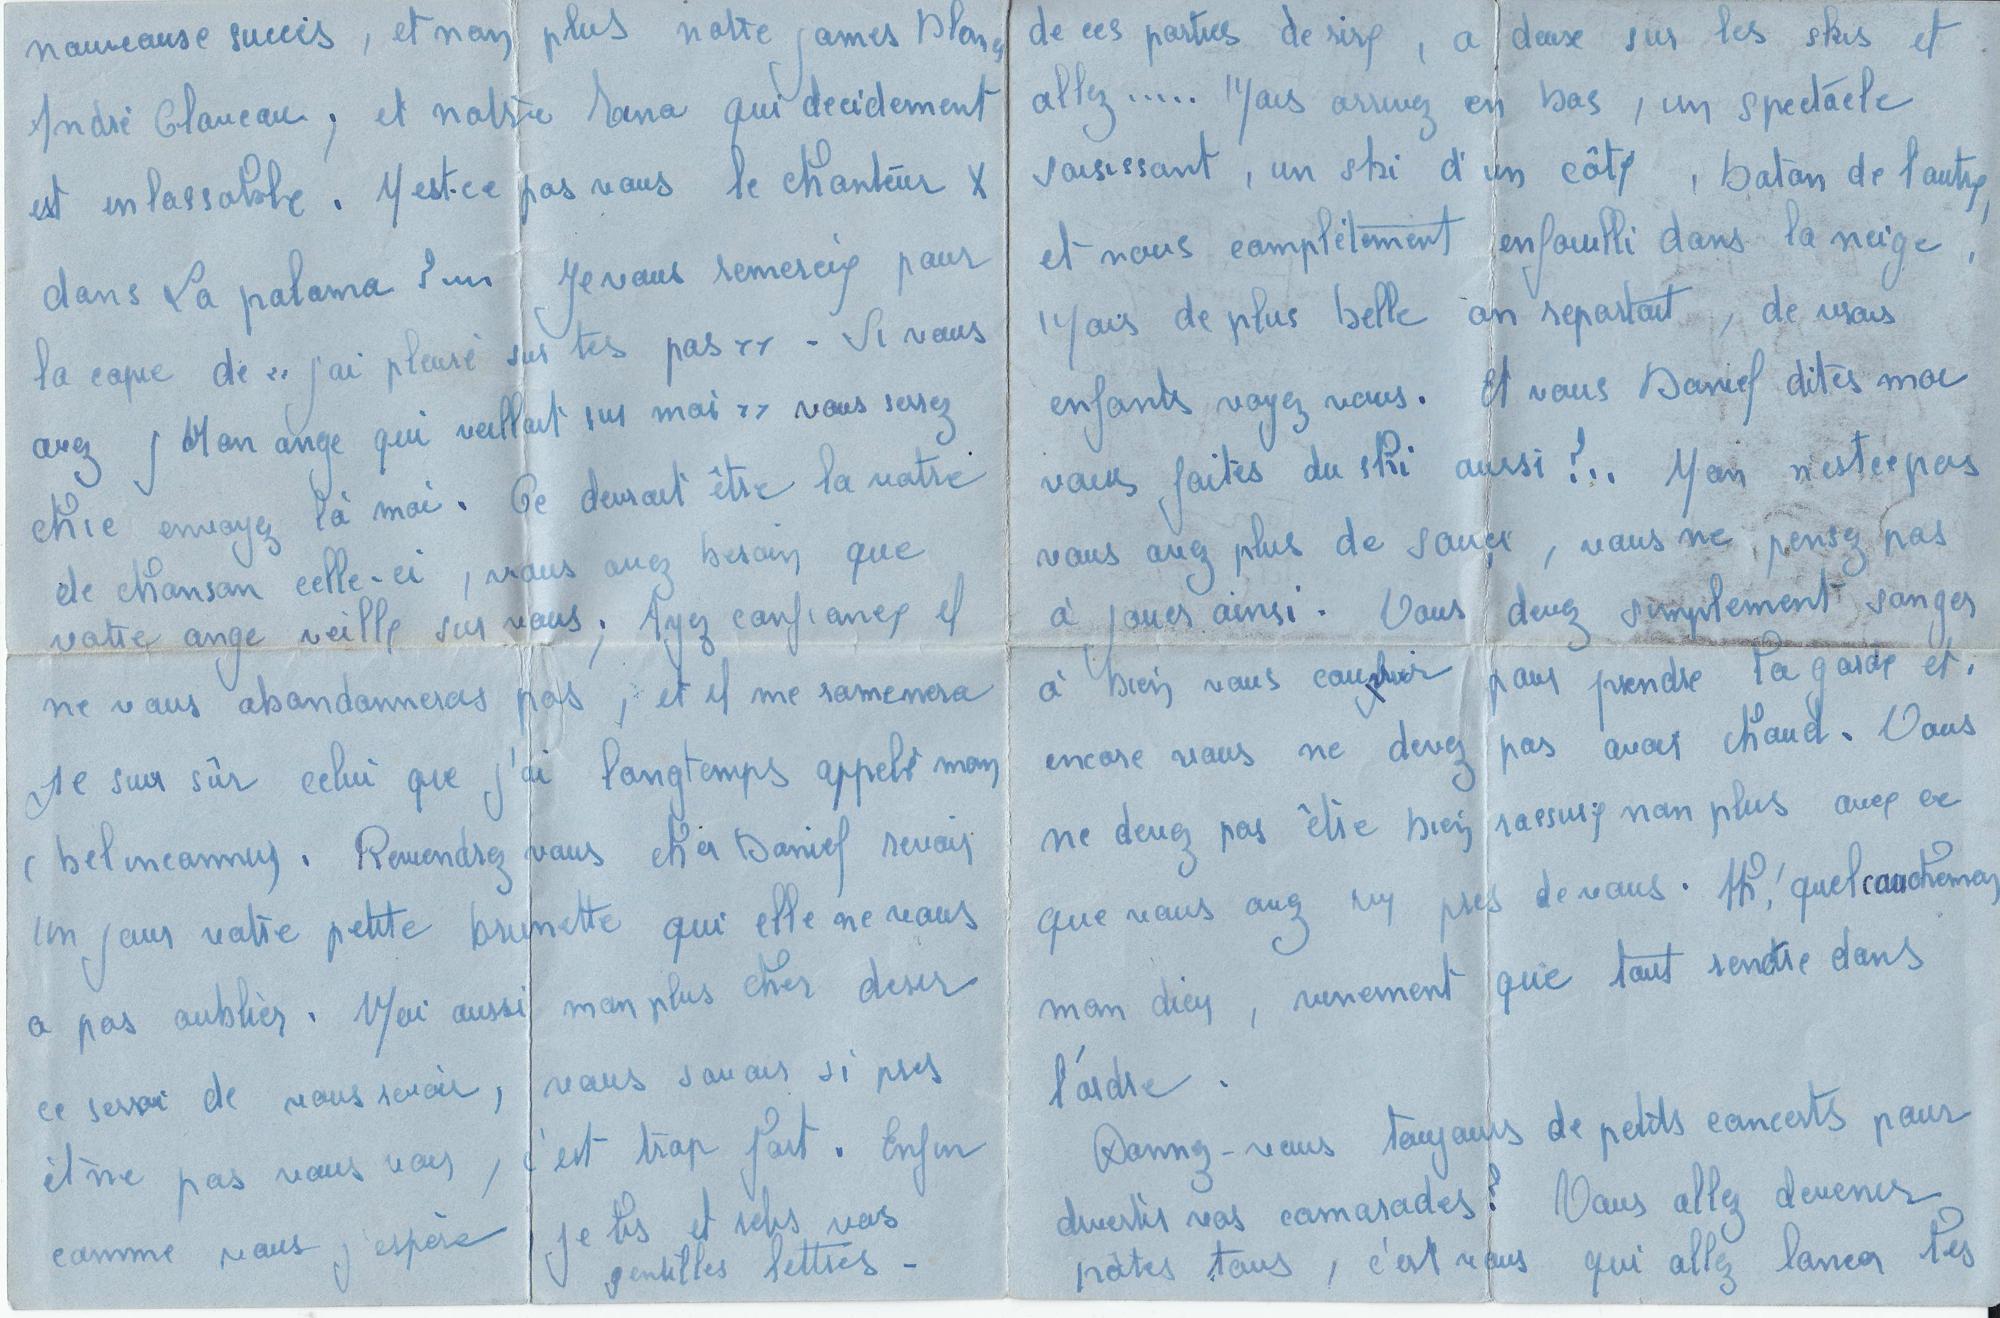 nouveause succès, et non plus notre james Blanc
André Claveau, et notre qui decidement
est inlassable. N'est-ce pas vous le chanteur X
dans La paloma ? Je vous remercie pour
la copie de " j'ai pleuré sur tes pas " - Si vous
avez Mon ange qui veillait sur moi " vous serez
chic envoyez là moi. Ce devrait être la votre
de chanson celle-ci, vous avez besoin que
votre ange veille sur vous, Ayez confiance il
ne vous abandonneras pas, et il me ramenera
je suis sûr celui que j'ai longtemps appelé mon
bel inconnus. Reviendrez vous cher Daniel revoir
un jour votre petite brunette qui elle ne vous
a pas oublièr. Moi aussi mon plus cher desir
ce serrai de vous revoir, vous savoir si pres
et ne pas vous voir, c'est trop fort. Enfin
comme vous j'espère je lis et relis vos
gentilles lettres -
de ces parties de rire, a deux sur les skis et
allez ..... Mais arrivez en bas, un spectàcle
saisissant, un ski d'un côté, baton de l'autre,
et nous complétement enfouilli dans la neige,
Mais de plus belle on repartait, de vrais
enfants voyez vous. Et vous Daniel dites moi
vous faites du ski aussi ?.. Non n'est ce pas
vous avez plus de souci, vous ne pensez pas
à jouer ainsi. Vous devez simplement songer
à bien vous couvrir pour prendre la garde et.
encore vous ne devez pas avoir chaud. Vous
ne devez pas être bien rassuré non plus avec ce
que vous avez si pres de vous. Ah! quel cauchemar
mon dieu, vivement que tout rentre dans
l'ordre.
Donnez-vous toujours de petits concerts pour
divertir vos camarades? Vous allez devenir
pâtes tous, c'est vous qui allez lancer les